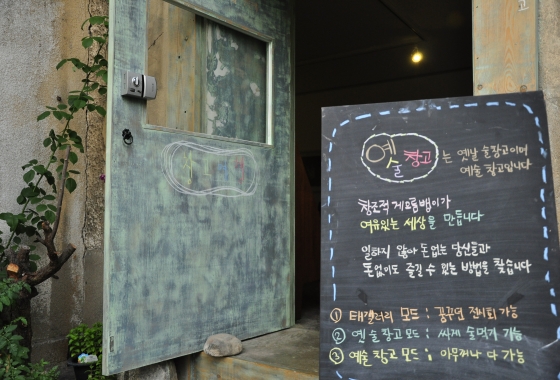 옛술창고는 옛날 술창고이며
예술 창고입니다
창조적 게으름뱅이가
여유있는 세상을 만듭니다
일하지 않아 돈없는 당신들과
돈없이도 즐길 수 있는 방법을 찾습니다
① 태갤러리 모드 : 꿈꾸면 전시회 가능
② 옛 술 창고 모드 : 싸게 술먹기 가능
③ 예술 창고 모드 : 아무꺼나 다 가능